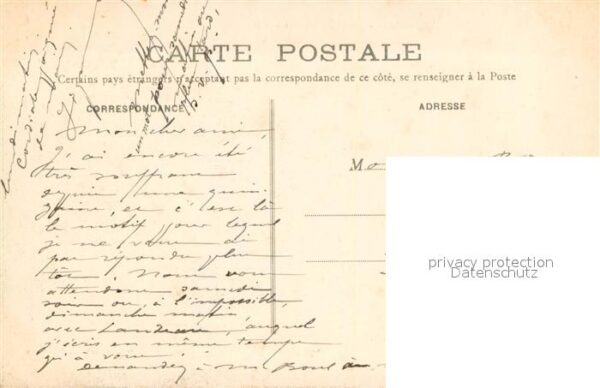 CARTE POSTALE
Certains pays étrangers n'acceptant pas la correspondance de ce côté, se renseigner à la Poste
CORRESPONDANCE
ADRESSE
Mon cher ami
J'ai encore été
très souffrant
depuis une quin
zaine, et c'est là
le motif pour lequel
je ne vous ai
pas répondu plus
tôt. Nous vous
attendons samedi
soir ou, à l'impossible,
dimanche matin,
avec auquel
j'écris en même temps
qu'à vous.
Demandez à M
lundi matin
Cordiale poignée
de main
un mot pour
privacy protection
Datenschutz